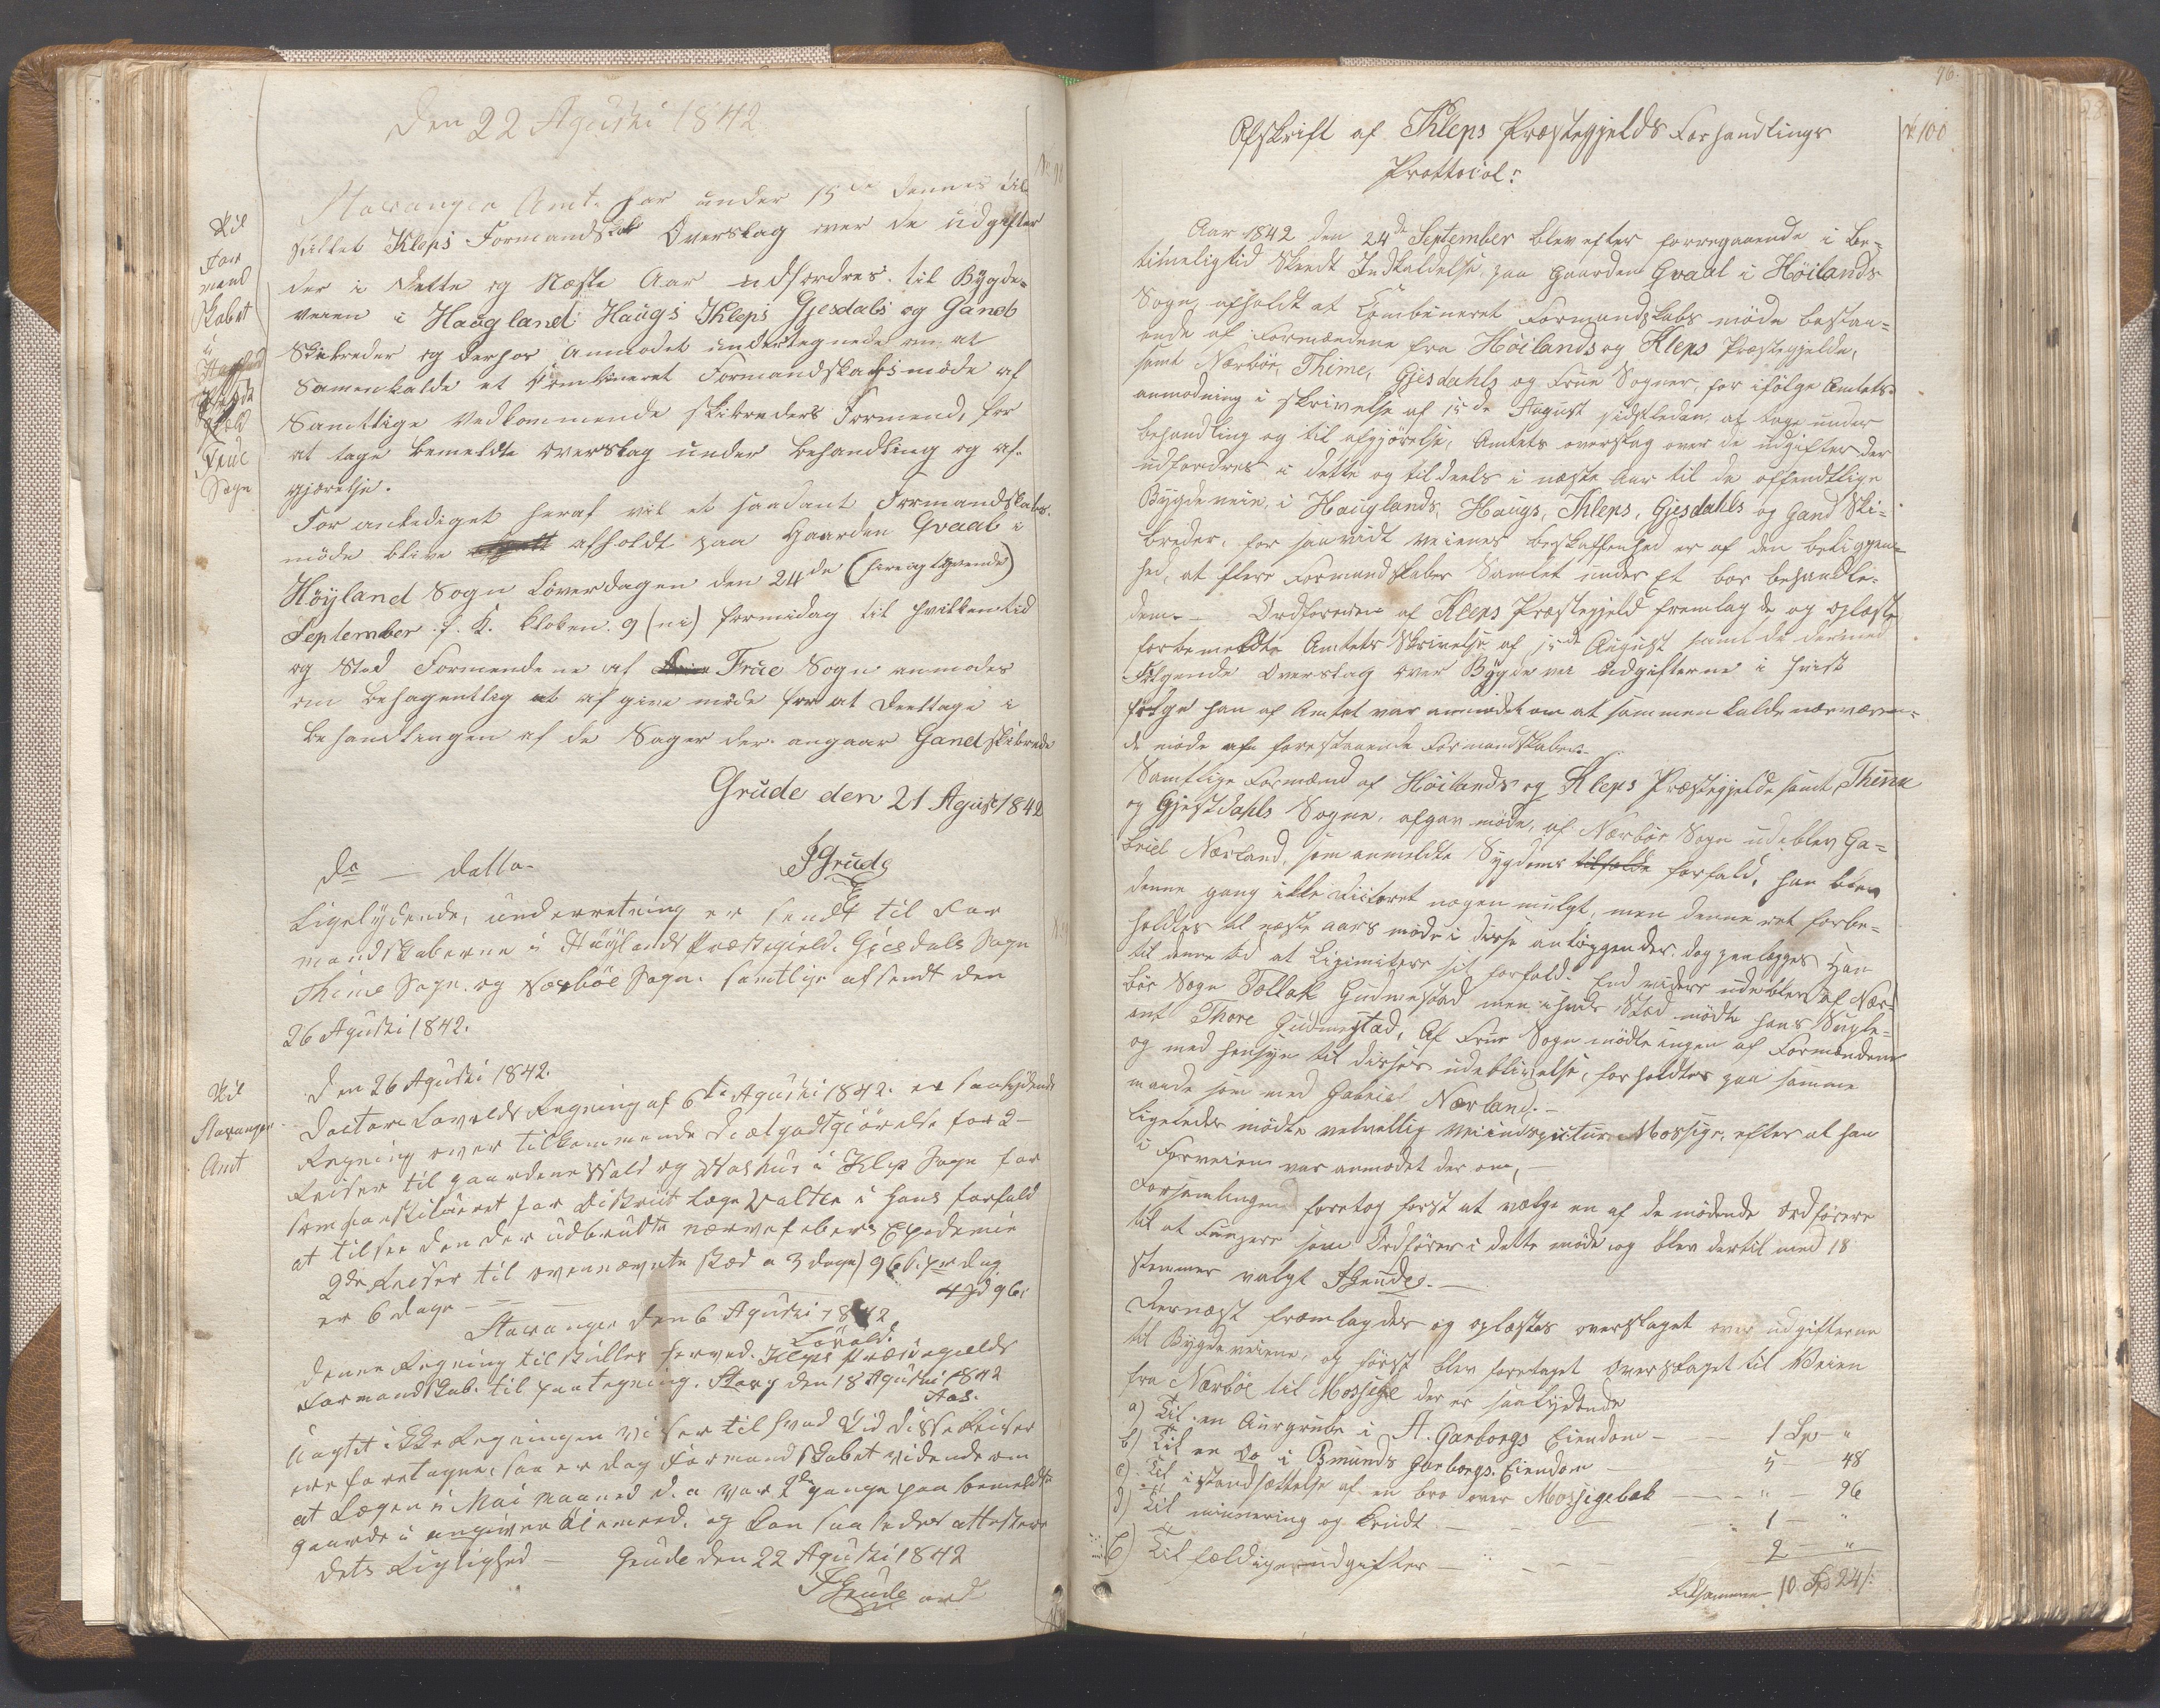 Den 22 Agusti 1842
No 98
Til
For
mand
skabet
i
Frue
Sogn
Stavanger Amt har under 15de dennes til
stillet Kleps Formandskab Overslag over de udgifter
der i Dette og Næste Aar udfordres til Bygde-
veien i Haugland Haugs Kleps Gjesdals og Gand
Skibreder og derhos Anmodet undertegnede om at
Samenkalde et Combineret Formandskabsmøde af
Samtlige Vedkommende skibreders Formend, for
at tage bemeldte Overslag under Behandling og af-
gjørelse.
For anlediget heraf vil et saadant Formandskabs-
møde blive afholdt paa Gaarden Qvaal i
Höyland Sogn Løverdagen den 24de (fire og tyvende)
September f. k. Kloken 9 (ni) formidag til hvilken tid
og Sted Formendene af Frue Sogn anmodes
om behagentlig at af give møde for at Deeltage i
Behandlingen af de Sager der angaar Gand skibrede
Grude den 21 Agust 1842
JGrude
Do — datto-
Ligelydende, underretning er sendt til For
mandskaberne i Höylands Præstegield, Giesdals Sogn
Thime Sogn og Nærböe Sogn samtlige afsendt den
26 Agusti 1842.
Til
Stavanger
Amt
Den 26 Agusti 1842.
Doctor Lovolds Regning af 6te Agusti 1842. er saalydende
Regning over tilkommende Diætgodtgiörelse for 2-
Reiser til gaardene Vold og i Klep Sogn for
som constitueret for Distrikt Læge Valter i hans forfald
at tilsee den der udbrudte nærvefebers Epidemie
2de Reiser til overnævnte Stæd a 3 dage) 96 s. pr dag
er 6 dage - - — 4 Spd 96 s
Stavanger den 6 Agusti 1842
Lövold.
Denne Regning tilstilles herved Kleps Præstegields
Formandskab til paategning. Stavg den 18 Agusti 1842
Aas.
Uagtet ikke Regningen viser til hvad Tid disse Reiser
ere foretagne, saa er dog Formandskabet vidende om
at Lægen i Mai maaned d. a var 2de gange paa bemeldte
gaarde i angiven Øiemeed, og kan saaledes attestere
dets Rigtighed — Grude den 22 Agusti 1842
JGrude ord
76.
No 100
Afskrift af Kleps Præstegjelds Forhandlings
Prottocol:
Aar 1842 den 24de September blev efter forregaaende i be-
timeligtid Skeedt Indkaldelse, paa gaarden Qvaal i Höilands
Sogn, afholdt et Combineret Formandskabs møde bestaa-
ende af Formændene fra Höilands og Kleps Præstegjelde,
samt Nærböe, Thime, Gjesdahls og Frue Sogner, for ifölge Amtets
anmodning i skrivelse af 15de August sidstleden, at tage under
behandling og til afgjörelse, Amtets overslag over de udgifter der
udfordres i dette og tildeels i næste Aar til de offendtlige
Bygdeveie, i Hauglands, Haugs, Kleps, Gjesdahls og Gand Ski-
breder, for saavidt veienes beskaffenhed er af den beliggen-
hed, at flere Formandskaber Samlet under Et bør behandle
dem.— Ordføreren af Kleps Præstegjeld fremlagde og oplæste
forbemeldte Amtets Skrivelse af 15de August samt de dermed
Følgende Overslag over Bygdevei udgifterne i hvis
fölge han af Amtet var anmodet om at sammenkalde nærværen-
de møde af forestaaende Formandskaber.
Samtlige Formænd af Höilands og Kleps Præstegjelde samt Thime
og Gjesdahls Sogne, afgav møde, af Nærböe Sogn udeblev Ga-
briel Nærland, som anmeldte Sygdoms tilfælde forfald, han blev
denne gang ikke Dicteret nogen mulgt, men denne ret forbe-
holdtes til næste aars møde i disse anliggender. dog paalegges Ham
til denne tid at Ligimitere sit forfald. End videre udeblev af Nær-
böe Sogn Tollak Gudmestad men i hvis Stæd mödte hans Suple-
ant Thore Gudmestad, Af Frue Sogn mödte ingen af Formændene
og med hensyn til disses udeblivelse, forholdtes paa samme
maade som med Gabriel Nærland.—
Ligeledes mödte velvillig Veiinspectur Mossige, efter at han
i Forveien var anmodet der om,—
Forsamlingen foretog først at vælge en af de mödende ordförere
til at Fungere som Ordförer i dette möde og blev dertil med 18
stemmer valgt JGrude.—
Dernæst fremlagdes og oplæstes overslaget over udgifterne
til Bygdeveiene, og först blev foretaget Overslaget til Veien
fra Nærböe til Mossige der er saalydende
a) Til en Aurgrube i A. Garborgs Eiendom — — 1 Sp — "
b) Til en Do i Osmunds Garborgs Eiendom — 5 — 48
c) Til istandsættelse af en bro over Mossigebæk — — " — 96
d) Til minnering og Krudt — — 1 — "
e) Til fældige udgifter — — — 2 — "
Tilsammen 10 Spd 24 s: